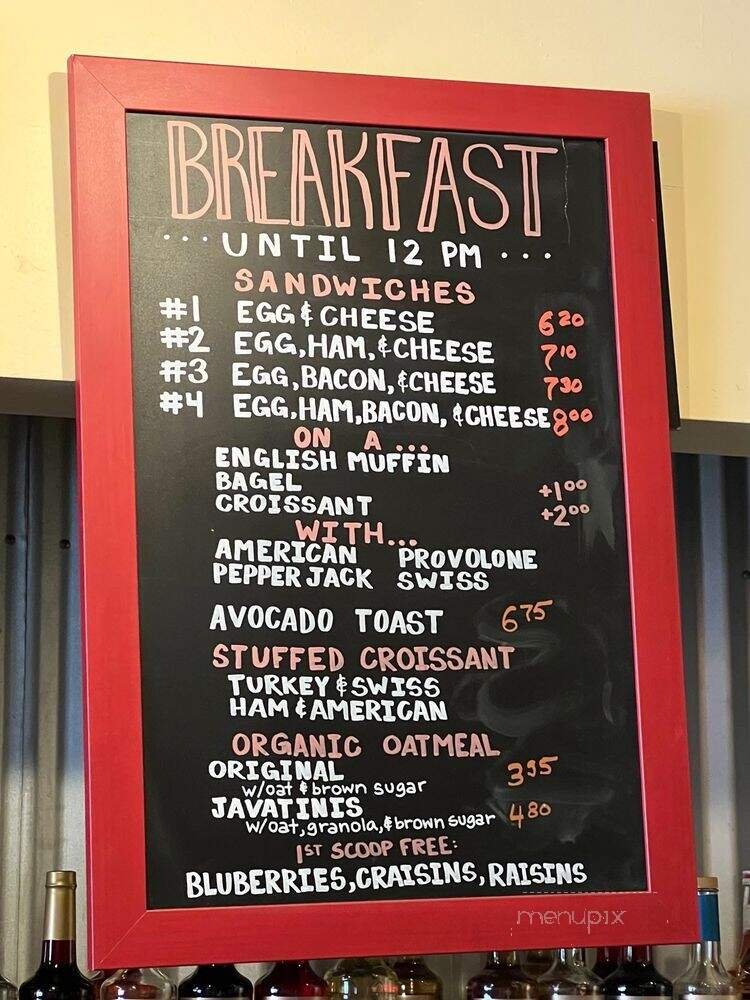 BREAKFAST
... UNTIL 12 PM ...
SANDWICHES
#1 EGG & CHEESE 6.20
#2 EGG, HAM, & CHEESE 7.10
#3 EGG, BACON, & CHEESE 7.30
#4 EGG, HAM, BACON, & CHEESE 8.00
ON A ...
ENGLISH MUFFIN
BAGEL +1.00
CROISSANT +2.00
WITH...
AMERICAN PROVOLONE
PEPPER JACK SWISS
AVOCADO TOAST 6.75
STUFFED CROISSANT
TURKEY & SWISS
HAM & AMERICAN
ORGANIC OATMEAL
ORIGINAL 3.95
w/oat & brown sugar
JAVATINIS 4.80
w/oat, granola, & brown sugar
1ST SCOOP FREE:
BLUBERRIES, CRAISINS, RAISINS
menupix